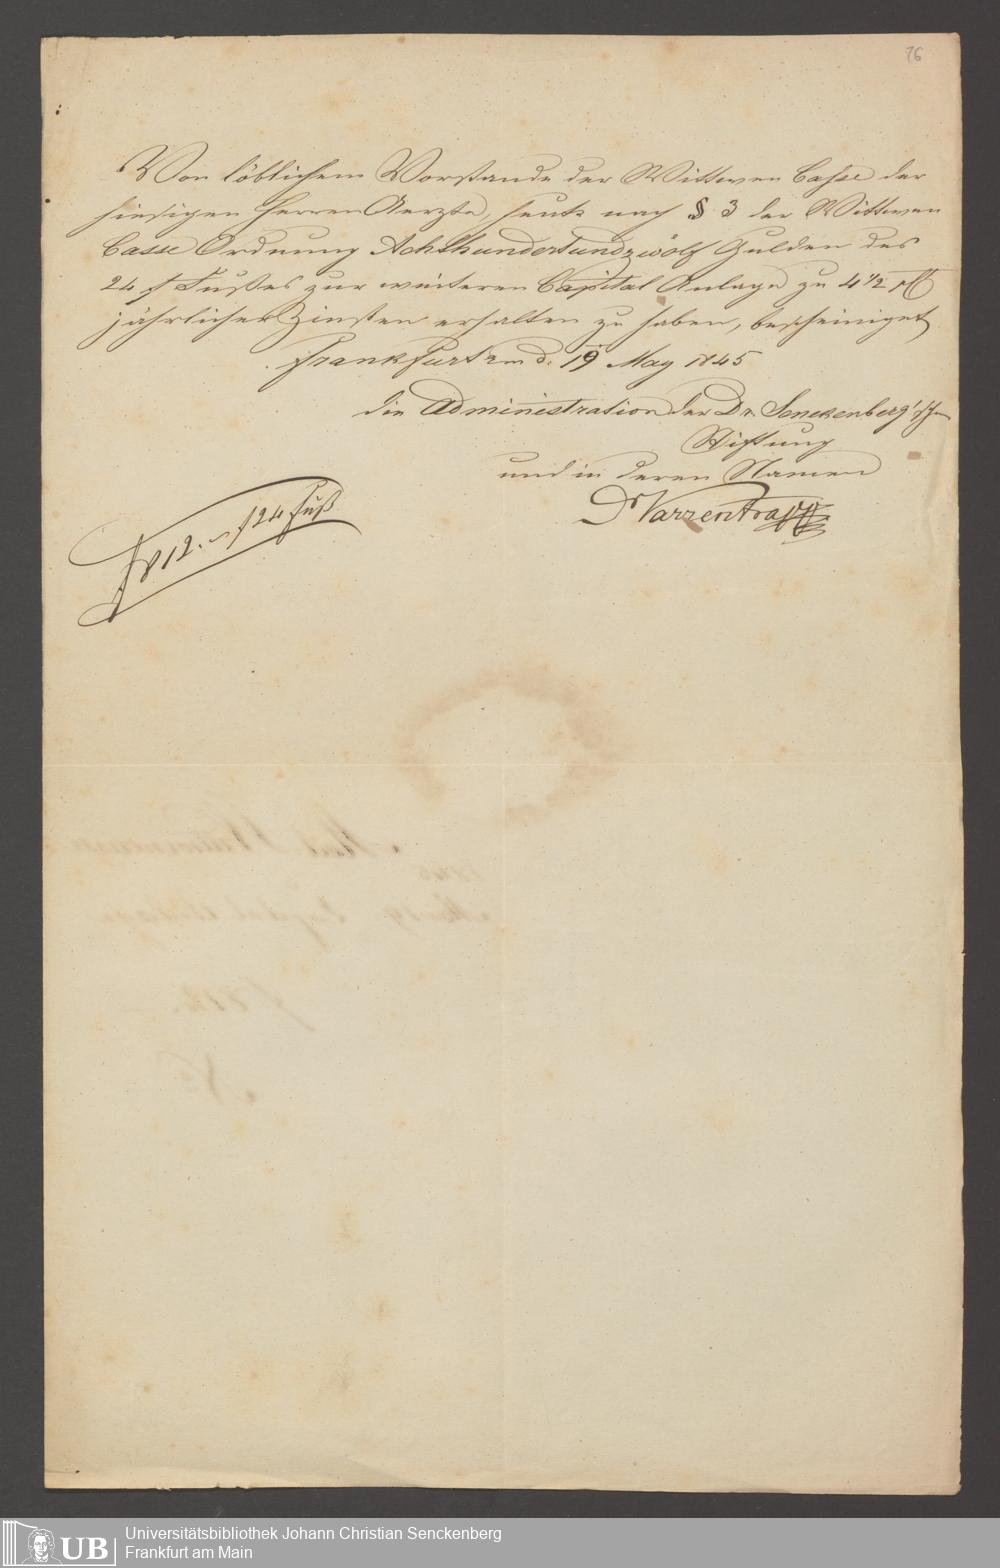 76
Von löblichem Vorstande der Wittwen Casse der
hiesigen Herren Aerzte, heute nach § 3 der Wittwen
Casse Ordnung Achthundertundzwölf Gulden des
24 f Fußes zur weiteren Capital Anlage zu 4 1/2 pCt
jährlicher Zinsen erhalten zu haben, bescheiniget
Frankfurt am d. 19 May 1845
die Administration der Dr. Senckenberg'schen
Stiftung
und in deren Namen
Dr Varrentrapp
f 812. – f 24 Fuß
Universitätsbibliothek Johann Christian Senckenberg
Frankfurt am Main
UB